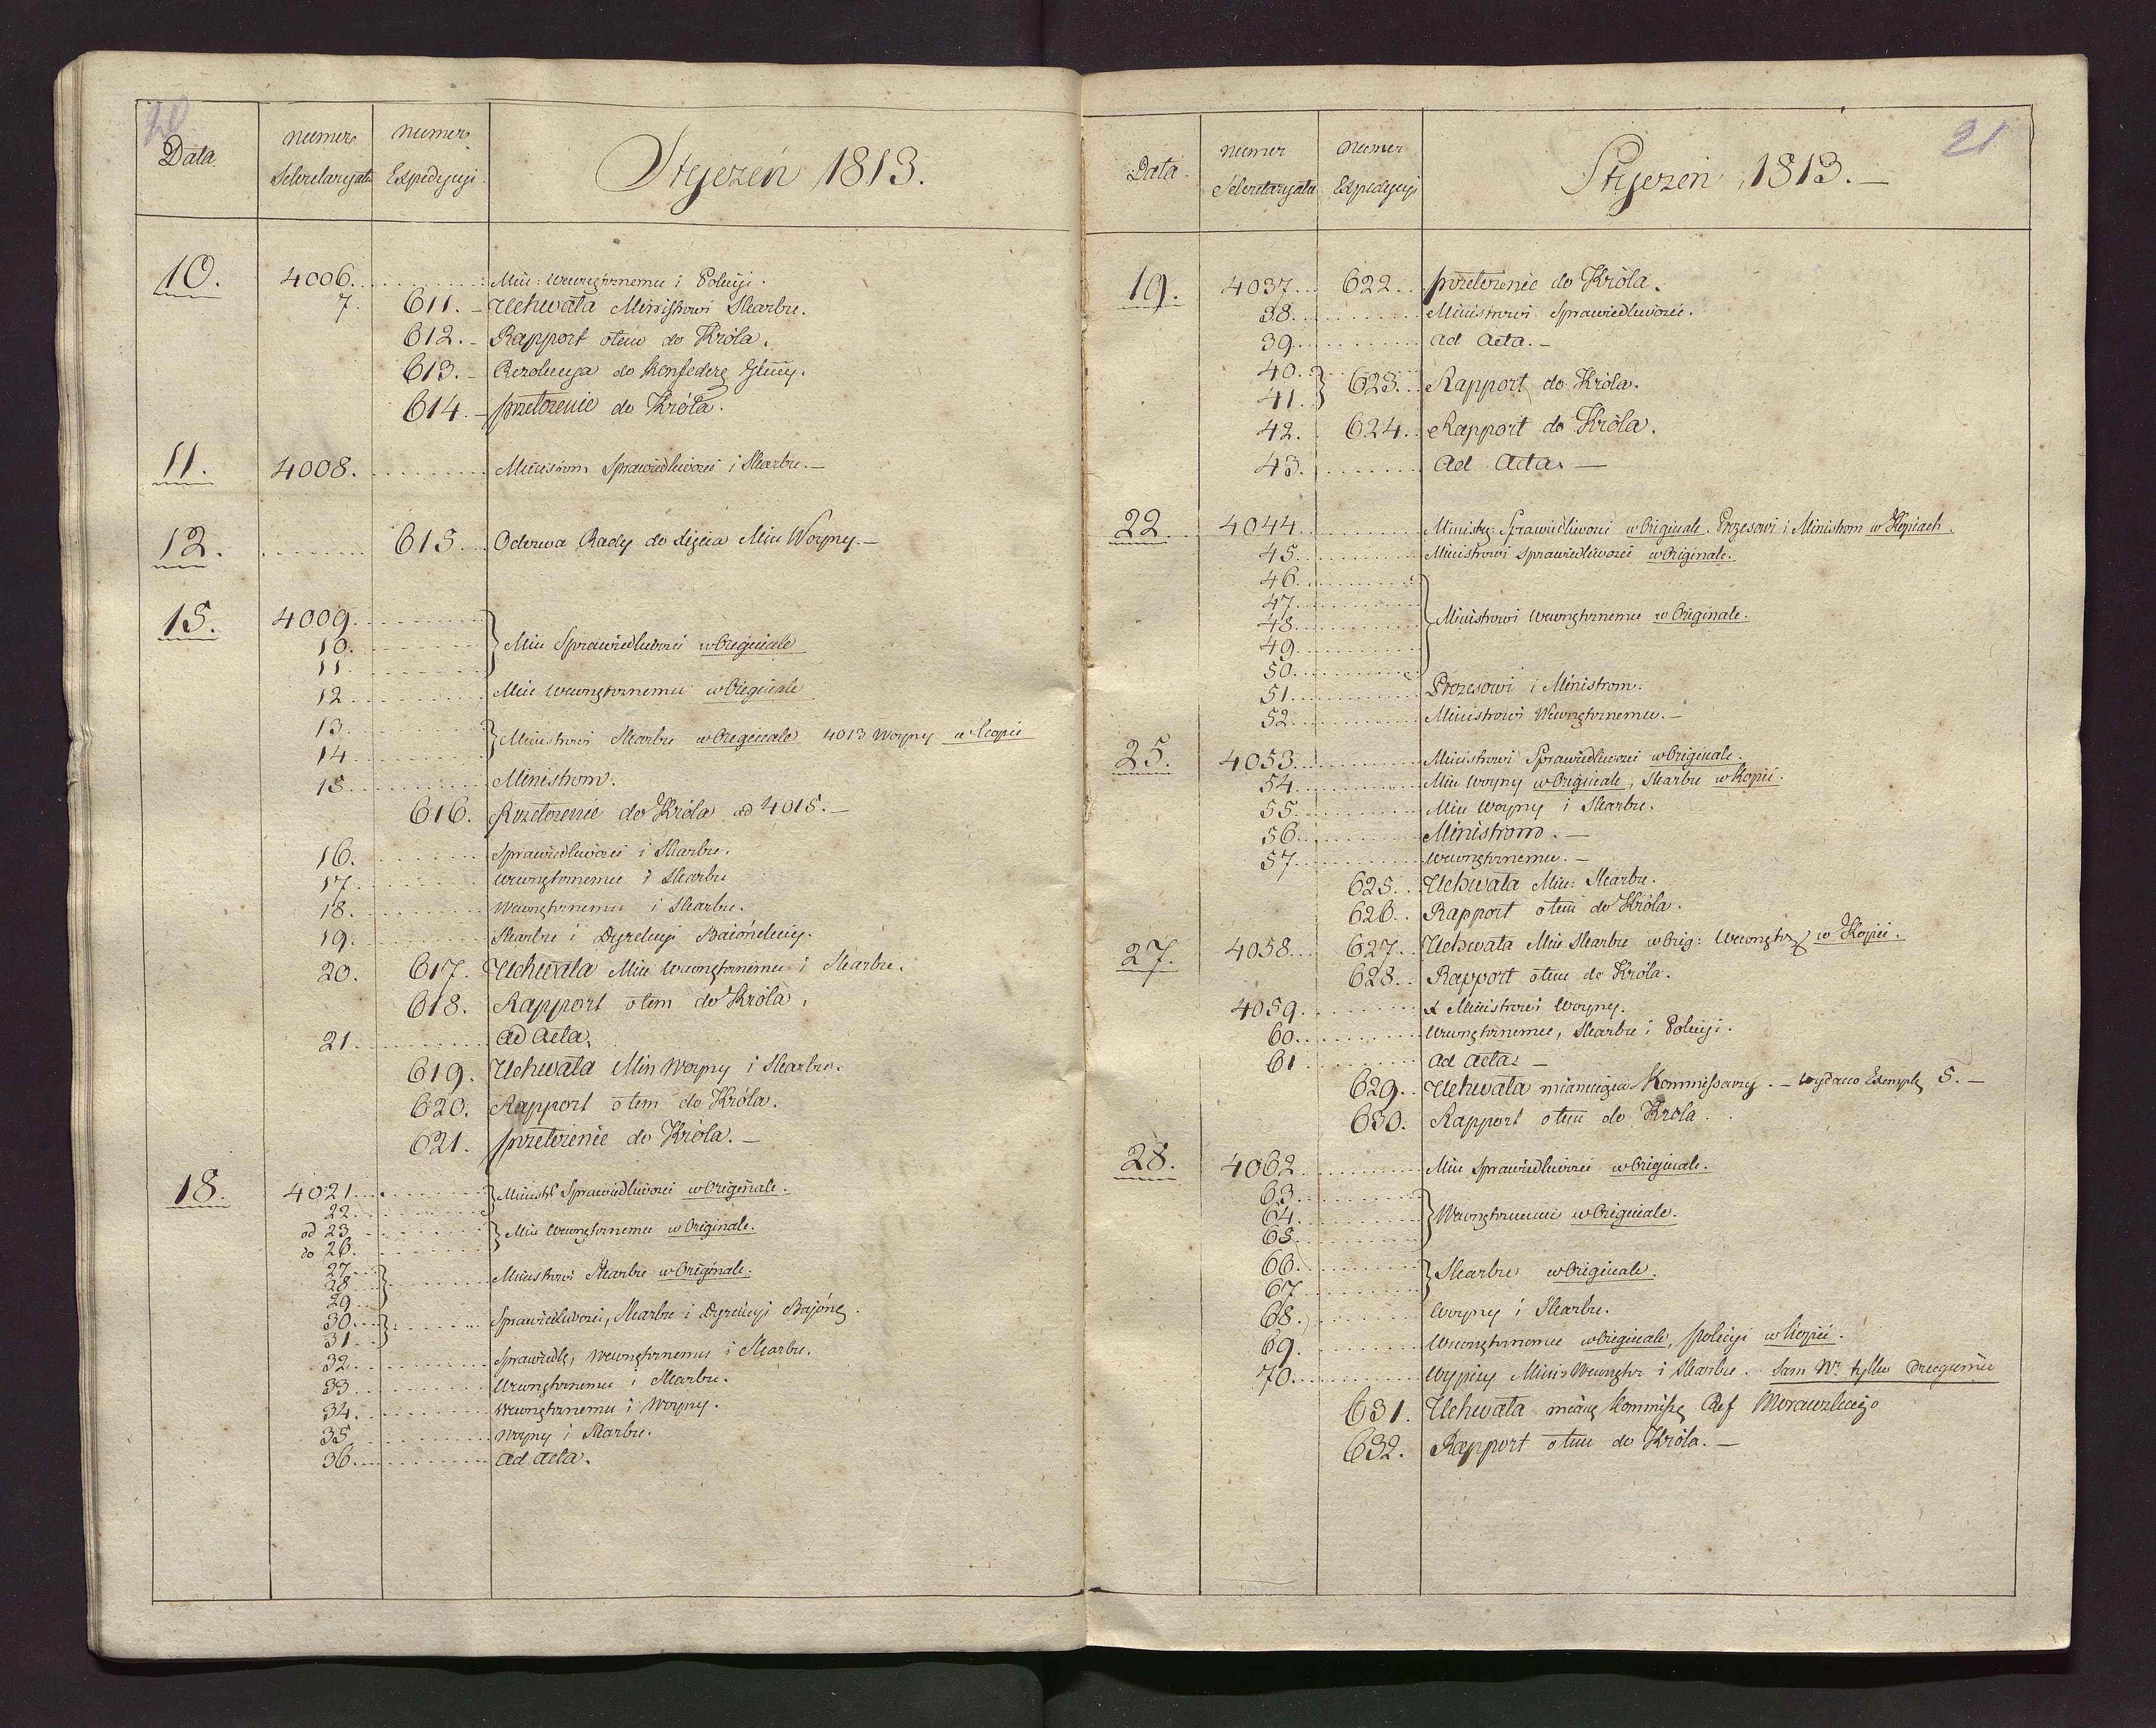 20
Data numer Sekretaryatu numer Expedycyi Styczeń 1813.
10. 4006. Min: Wewnętrznemu i Policyi.
7. 611. Uchwała Ministrowi Skarbu.
612. Rapport o tem do Króla.
613. Rezolucya do Konfeder
614. przełożenie do Króla.
11. 4008. Ministrom Sprawiedliwości i Skarbu.
12. 615. Odezwa Rady do Xięcia Min Woyny.
15. 4009.
10. Min Sprawiedliwości w Originale
11
12 Min Wewnętrznemu w Originale
13. Ministrowi Skarbu w Originale 4013 Woyny w Kopii
14
15 Ministrom.
616. Przełożenie do Króla ad 4015.
16. Sprawiedliwości i Skarbu.
17. Wewnętrznemu i Skarbu
18. Wewnętrznemu i Skarbu.
19. Skarbu i Dyrekcyi Baiońskiey.
20. 617. Uchwała Min Wewnętrznemu i Skarbu.
618. Rapport o tem do Króla.
21. ad acta.
619. Uchwała Min Woyny i Skarbu.
620. Rapport o tem do Króla.
621. przełożenie do Króla.
18. 4021. Ministr Sprawiedliwości w Originale.
22.
od 23 Min Wewnętrznemu w Originale.
do 26.
27
28 Ministrowi Skarbu w Originale.
29
30. Sprawiedliwości, Skarbu i Dyrekcyi Bajońs.
31
32. Sprawiedl, Wewnętrznemu i Skarbu.
33 Wewnętrznemu i Skarbu.
34. Wewnętrznemu i Woyny.
35 Woyny i Skarbu.
36. ad acta.
21
Data. numer Sekretaryatu numer Expedycyi Styczeń 1813.
19. 4037. 622. przełożenie do Króla.
38. Ministrowi Sprawiedliwości.
39. ad acta.
40.
41. 623. Rapport do Króla.
42. 624. Rapport do Króla.
43. ad acta.
22. 4044. Ministr: Sprawiedliwości w Originale. Prezesowi i Ministrom w Kopiach.
45. Ministrowi Sprawiedliwości w Originale.
46.
47
48 Ministrowi Wewnętrznemu w Originale.
49
50.
51. Prezesowi i Ministrom.
52. Ministrowi Wewnętrznemu.
25. 4053. Ministrowi Sprawiedliwości w Originale.
54. Min Woyny w Originale, Skarbu w Kopii.
55. Min Woyny i Skarbu.
56. Ministrom.
57 Wewnętrznemu.
625. Uchwała Min: Skarbu.
626. Rapport o tem do Króla.
27. 4058. 627. Uchwała Min Skarbu w Orig: Wewnętrz w Kopii.
628. Rapport o tem do Króla.
4059. Ministrowi Woyny.
60. Wewnętrznemu, Skarbu i Policyi.
61 ad acta.
629. Uchwała mianuiąca Kommissarzy. wydano Exempl 5.
630. Rapport o tem do Króla.
28. 4062 Min Sprawiedliwości w Originale.
63
64. Wewnętrznemu w Originale.
65
66. Skarbu w Originale.
67
68. Woyny i Skarbu.
69. Wewnętrznemu w Originale, policyi w Kopii.
70. Wypisy Min: Wewnętr i Skarbu. Sam Nr tylko drugiemu
631. Uchwała mianu Kommiss Ref Morawskiego
632. Rapport o tem do Króla.